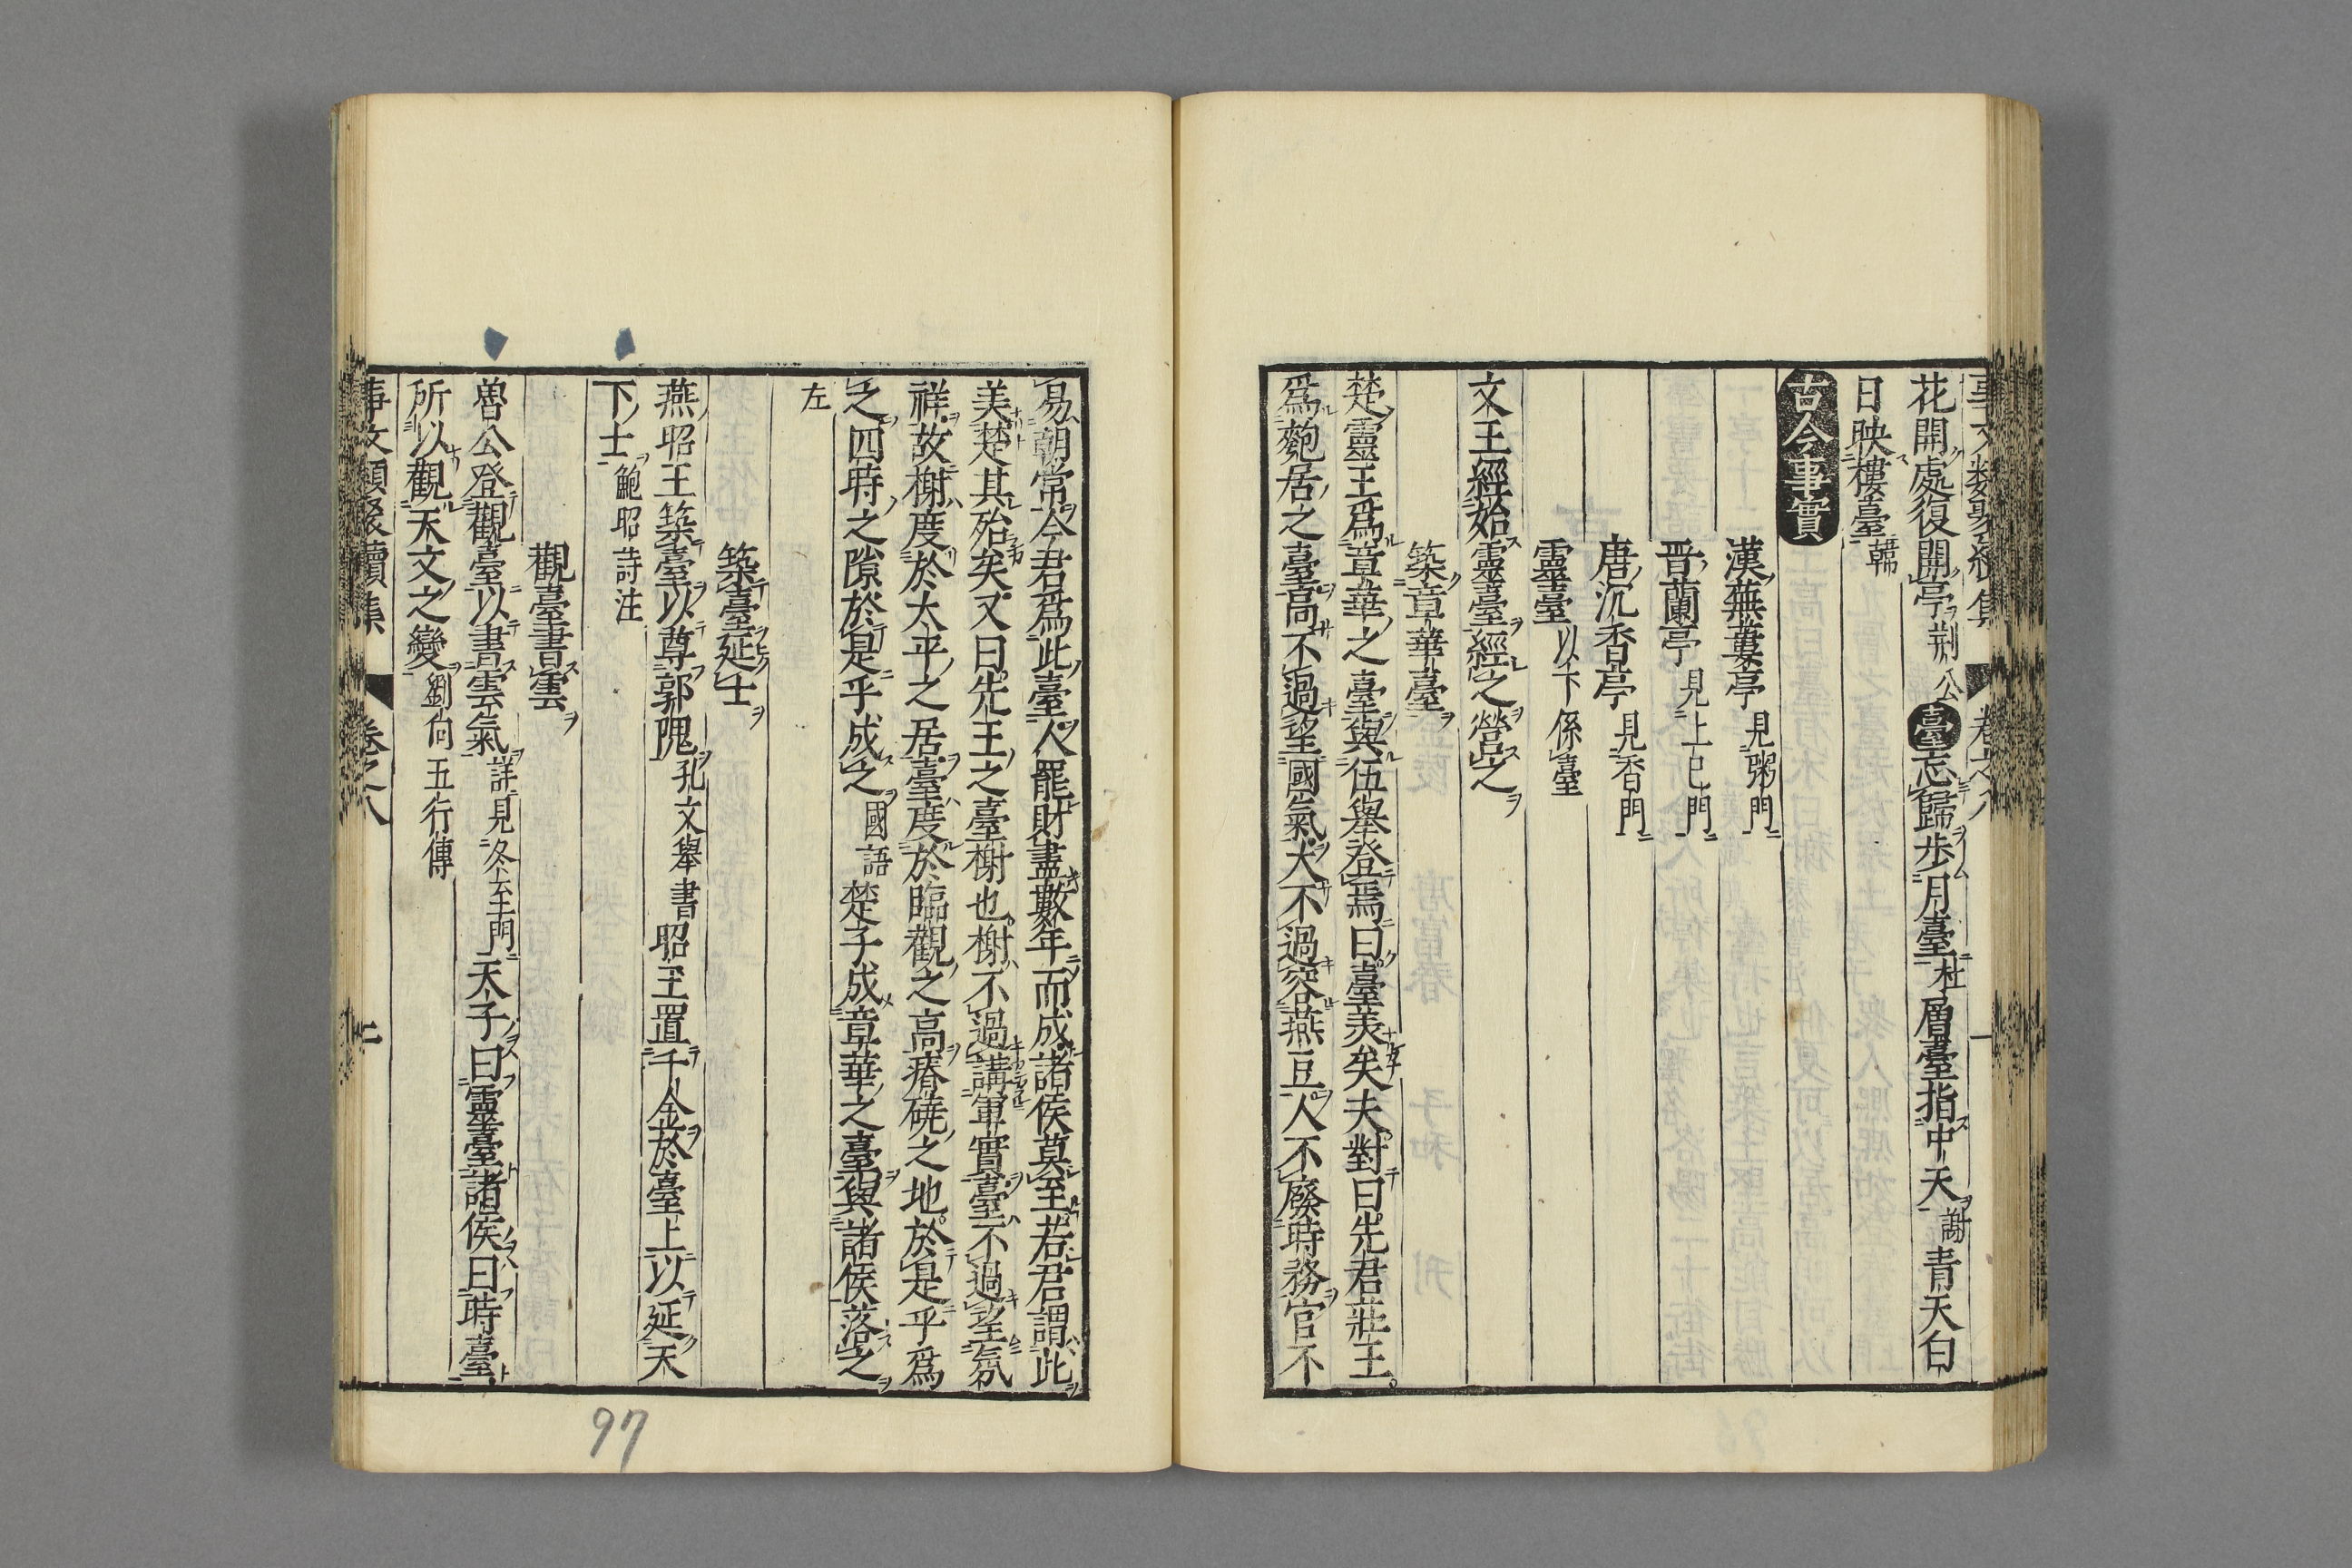 事文類聚續集 卷之八
花開處復開亭荆公臺忘歸步月臺杜層臺指中天謝青天白
日映樓臺韓
古今事實
漢蕪蔞亭見粥門
晋蘭亭見上巳門
唐沉香亭見香門
靈臺以下係臺
文王經始靈臺經之營之
築章華臺
楚靈王爲章華之臺與伍舉登焉曰臺美矣夫對曰先君莊王
爲匏居之臺高不過望國氣大不過容燕豆人不廢時務官不
易朝常今君爲此臺人罷財盡數年而成諸侯莫至若君謂此
美楚其殆矣又曰先王之臺榭也榭不過講軍實臺不過望氛
祥故榭度於太平之居臺度於臨觀之高瘠磽之地於是乎爲
之四時之隙於是乎成之國語楚子成章華之臺與諸侯落之
左
築臺延士
燕昭王築臺以尊郭隗孔文舉書昭王置千金於臺上以延天
下士鮑昭詩注
觀臺書雲
魯公登觀臺以書雲氣詳見冬至門天子曰靈臺諸侯曰時臺
所以觀天文之變劉向五行傳
事文類聚續集 卷之八
97